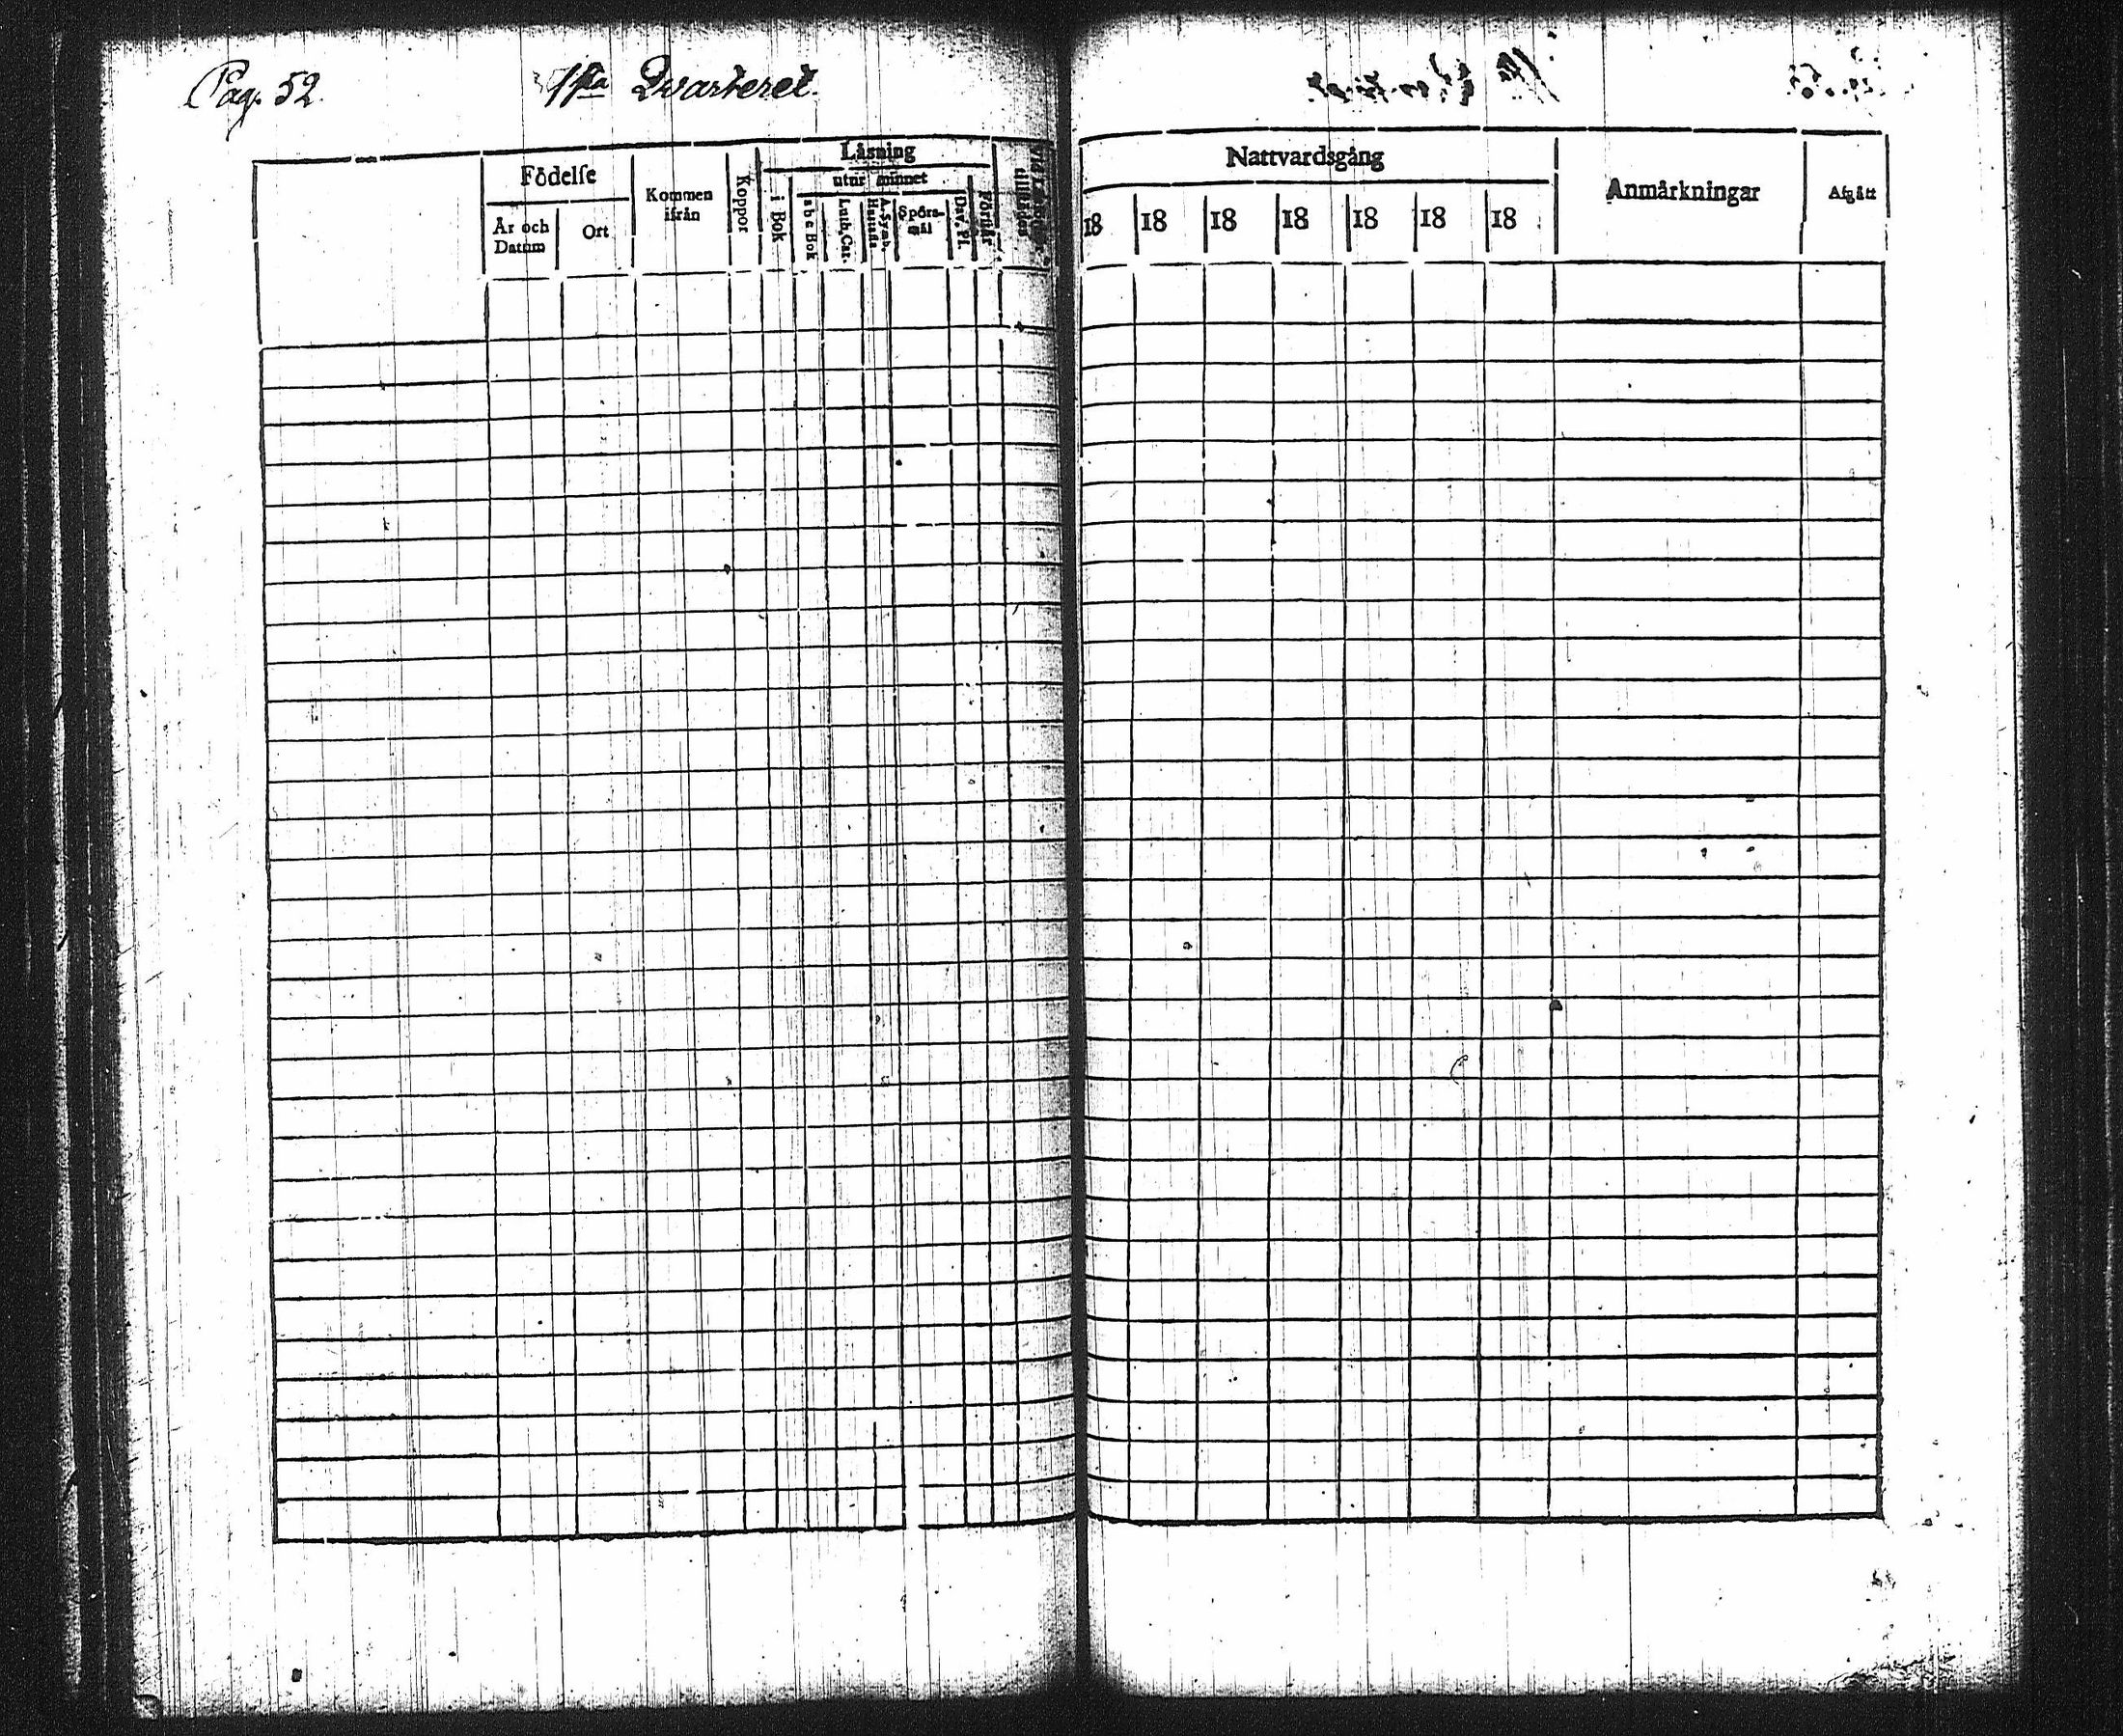 Pag. 52.
1sta Qvarteret.
Födelse
År och Datum
Ort
Kommen ifrån
Koppor
Läsning
i Bok
utur minnet
a b c Bok
Luth. Cat.
A. Symb. Hustafla
Spörsmål
Dav. Ps.
Förstår
Nattvardsgång
18 18 18 18 18 18 18
Anmärkningar
Afgått